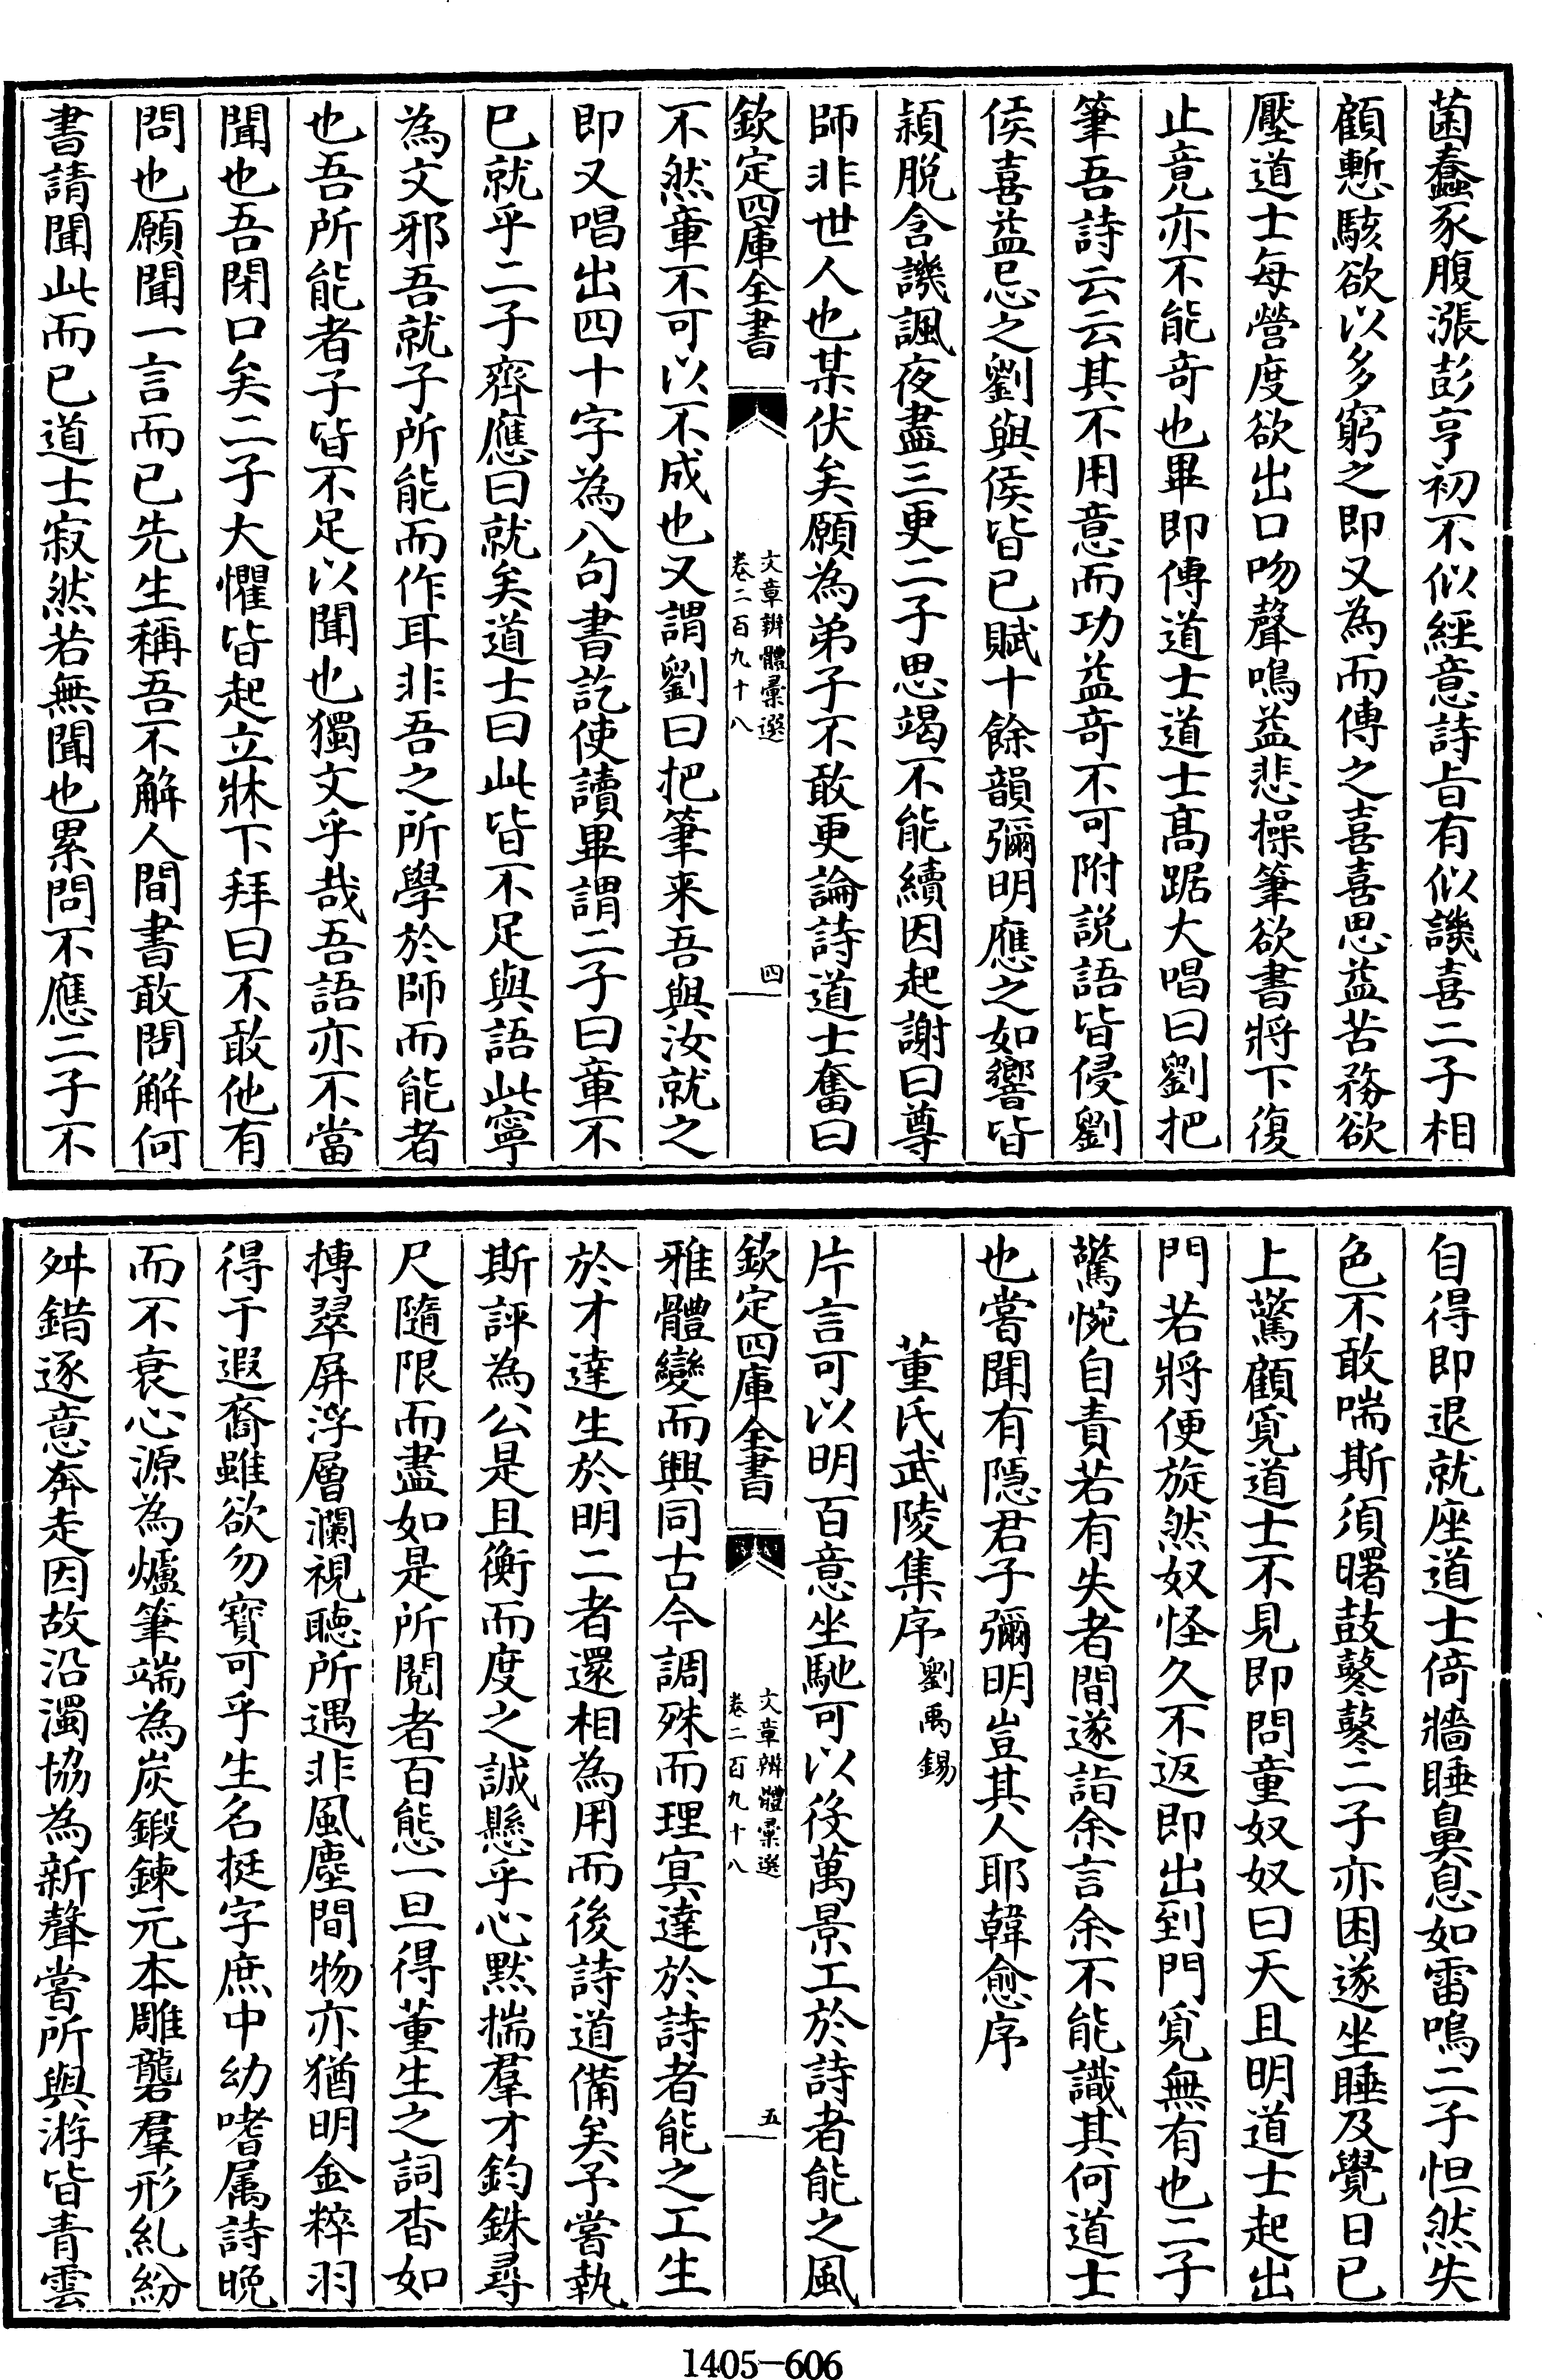 菌蠢豕腹漲彭亨初不似經意詩旨有似譏喜二子相
顧慙駭欲以多窮之即又為而傳之喜喜思益苦務欲
壓道士每營度欲出口吻聲鳴益悲操筆欲書將下復
止竟亦不能奇也畢即傳道士道士髙踞大唱曰劉把
筆吾詩云云其不用意而功益奇不可附説語皆侵劉
侯喜益忌之劉與侯皆已賦十餘韻彌明應之如響皆
頴脱含譏諷夜盡三更二子思竭不能續因起謝曰尊
師非世人也某伏矣願為弟子不敢更論詩道士奮曰
欽定四庫全書
文章辨體彚選
卷二百九十八
四
不然章不可以不成也又謂劉曰把筆来吾與汝就之
即又唱出四十字為八句書訖使讀畢謂二子曰章不
已就乎二子齊應曰就矣道士曰此皆不足與語此寧
為文邪吾就子所能而作耳非吾之所學於師而能者
也吾所能者子皆不足以聞也獨文乎哉吾語亦不當
聞也吾閉口矣二子大懼皆起立牀下拜曰不敢他有
問也願聞一言而已先生稱吾不解人間書敢問解何
書請聞此而已道士寂然若無聞也累問不應二子不
自得即退就座道士倚牆睡鼻息如雷鳴二子怛然失
色不敢喘斯須曙鼓鼕鼕二子亦困遂坐睡及覺日已
上驚顧覓道士不見即問童奴奴曰天且明道士起出
門若將便旋然奴怪久不返即出到門覓無有也二子
驚惋自責若有失者間遂詣余言余不能識其何道士
也嘗聞有隱君子彌明豈其人耶韓愈序
董氏武陵集序劉禹錫
片言可以明百意坐馳可以役萬景工於詩者能之風
欽定四庫全書
文章辨體彚選
卷二百九十八
五
雅體變而興同古今調殊而理㝠達於詩者能之工生
於才達生於明二者還相為用而後詩道備矣予嘗執
斯評為公是且衡而度之誠懸乎心黙揣羣才鈞銖尋
尺隨限而盡如是所閲者百態一旦得董生之詞杳如
摶翠屏浮層瀾視聴所遇非風塵間物亦猶明金粹羽
得于遐裔雖欲勿寳可乎生名挺字庶中幼嗜属詩晚
而不衰心源為爐筆端為炭鍛鍊元本雕礱羣形糺紛
舛錯逐意奔走因故沿濁協為新聲嘗所與游皆青雲
1405-606